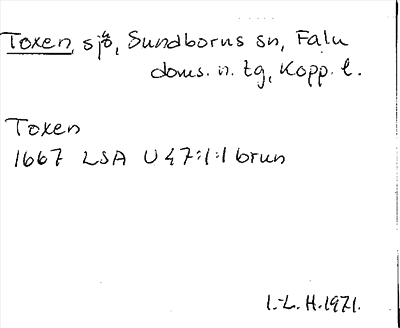 Toxen, sjö, Sundborns sn, Falu
doms. n. tg, Kopp. l.
Toxen
1667 LSA U47:1:1 brun
I.-L. H. 1971.